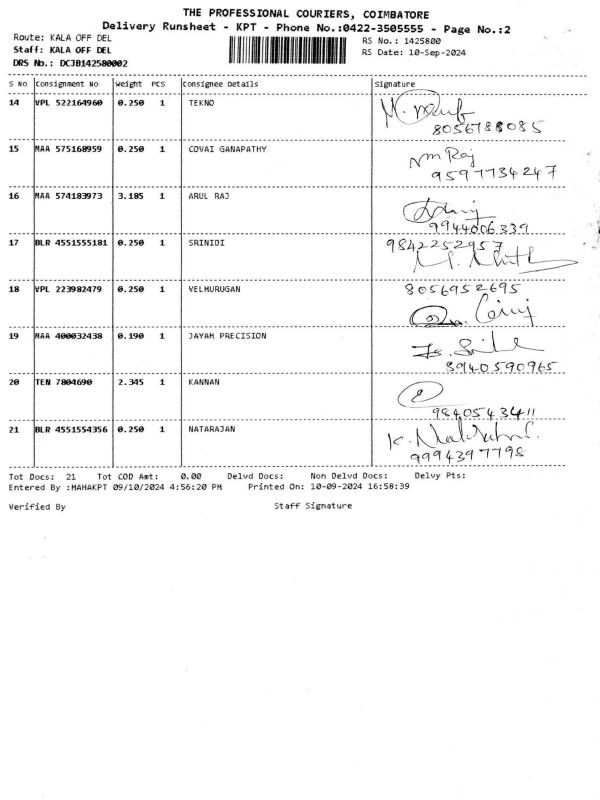 THE PROFESSIONAL COURIERS, COIMBATORE
Delivery Runsheet - KPT - Phone No.:0422-3505555 - Page No.:2
Route: KALA OFF DEL
RS No.: 1425800
Staff: KALA OFF DEL
RS Date: 10-Sep-2024
DRS No.: DCJB142580002
S No Consignment No Weight PCS Consignee Details Signature
14 VPL 522164960 0.250 1 TEKNO
8056788085
15 MAA 575168959 0.250 1 COVAI GANAPATHY
nm Raj
9597734247
16 MAA 574183973 3.185 1 ARUL RAJ
9944006339
17 BLR 4551555181 0.250 1 SRINIDI
9842252957
18 VPL 223982479 0.250 1 VELMURUGAN
8056952695
19 MAA 400032438 0.190 1 JAYAM PRECISION
8940590965
20 TEN 7804690 2.345 1 KANNAN
9840543411
21 BLR 4551554356 0.250 1 NATARAJAN
9994397798
Tot Docs: 21 Tot COD Amt: 0.00 Delvd Docs: Non Delvd Docs: Delvy Pts:
Entered By :MAHAKPT 09/10/2024 4:56:20 PM Printed On: 10-09-2024 16:58:39
Verified By Staff Signature